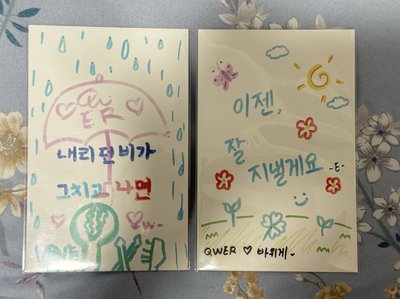 QW
ER
내리던 비가
그치고 나면
이젠,
잘
지낼게요
-E-
QWER ♡ 바위게